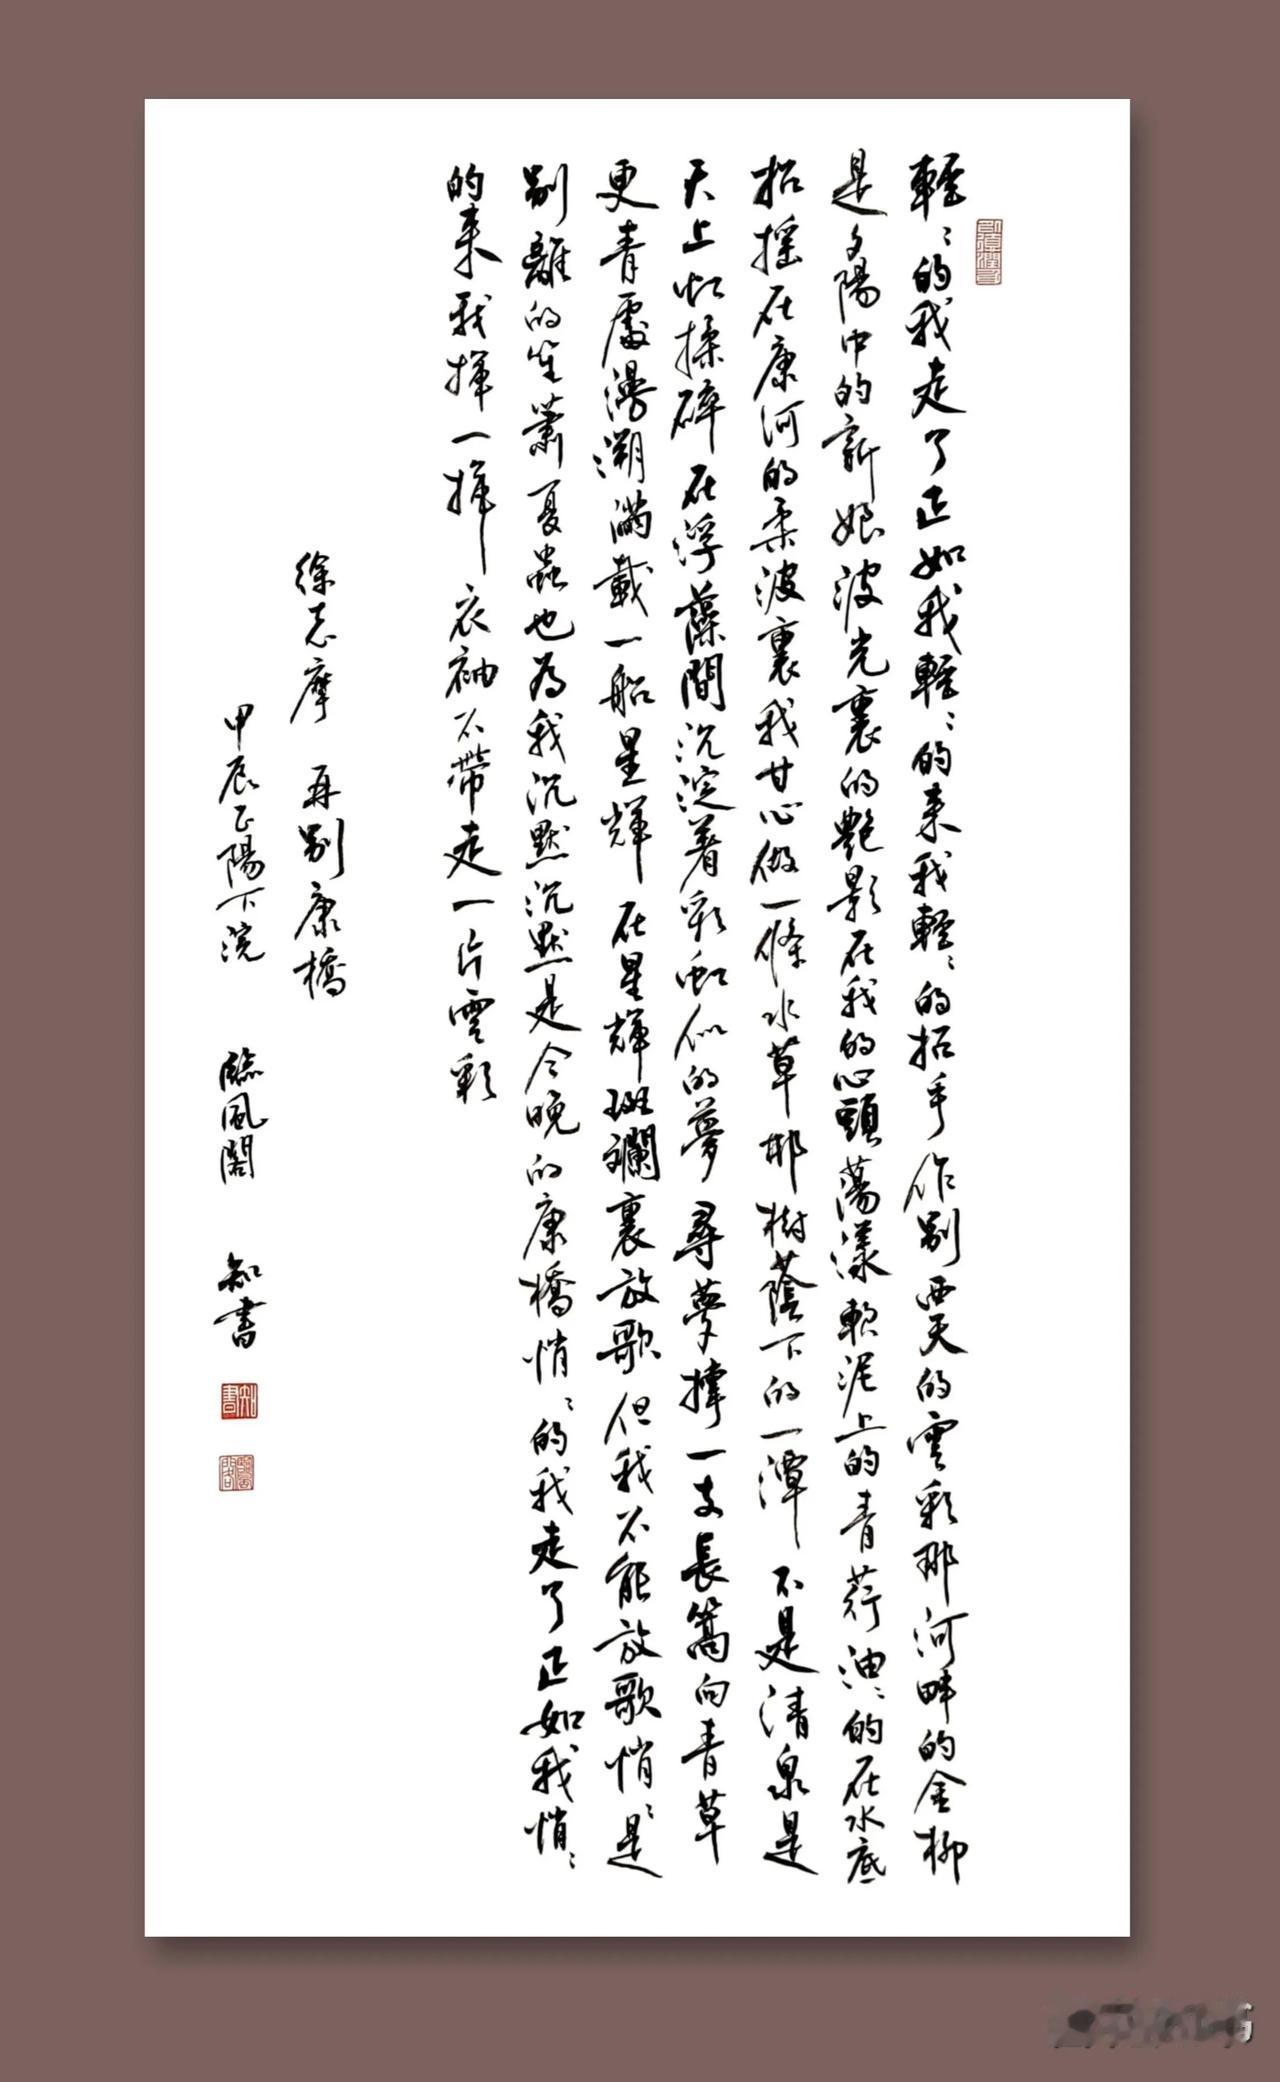 輕〻的我走了正如我輕〻的来我輕〻的招手作别西天的雲彩那河畔的金柳
是夕陽中的新娘波光裏的艶影在我的心頭蕩漾軟泥上的青荇油〻的在水底
招摇在康河的柔波裏我甘心做一條水草那榭蔭下的一潭不是清泉是
天上虹揉碎在浮藻間沉淀着彩虹似的夢尋夢撑一支長篙向青草
更青處漫溯滿載一船星輝在星輝斑斕裏放歌但我不能放歌悄〻是
别離的笙蕭夏蟲也為我沉默沉默是今晚的康橋悄〻的我走了正如我悄〻
的来我揮一揮衣袖不帶走一片雲彩
徐志摩 再别康橋
甲辰正陽下浣 臨風閣 知書
知書